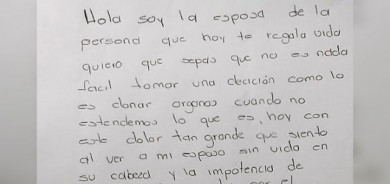 Hola soy la esposa de la
persona que hoy te regala vida
quiero que sepas que no es nada
facil tomar una decición como lo
es donar organos cuando no
estendemos lo que es, hoy con
este dolor tan grande que siento
al ver a mi esposo sin vida en
su cabeza y la impotencia de